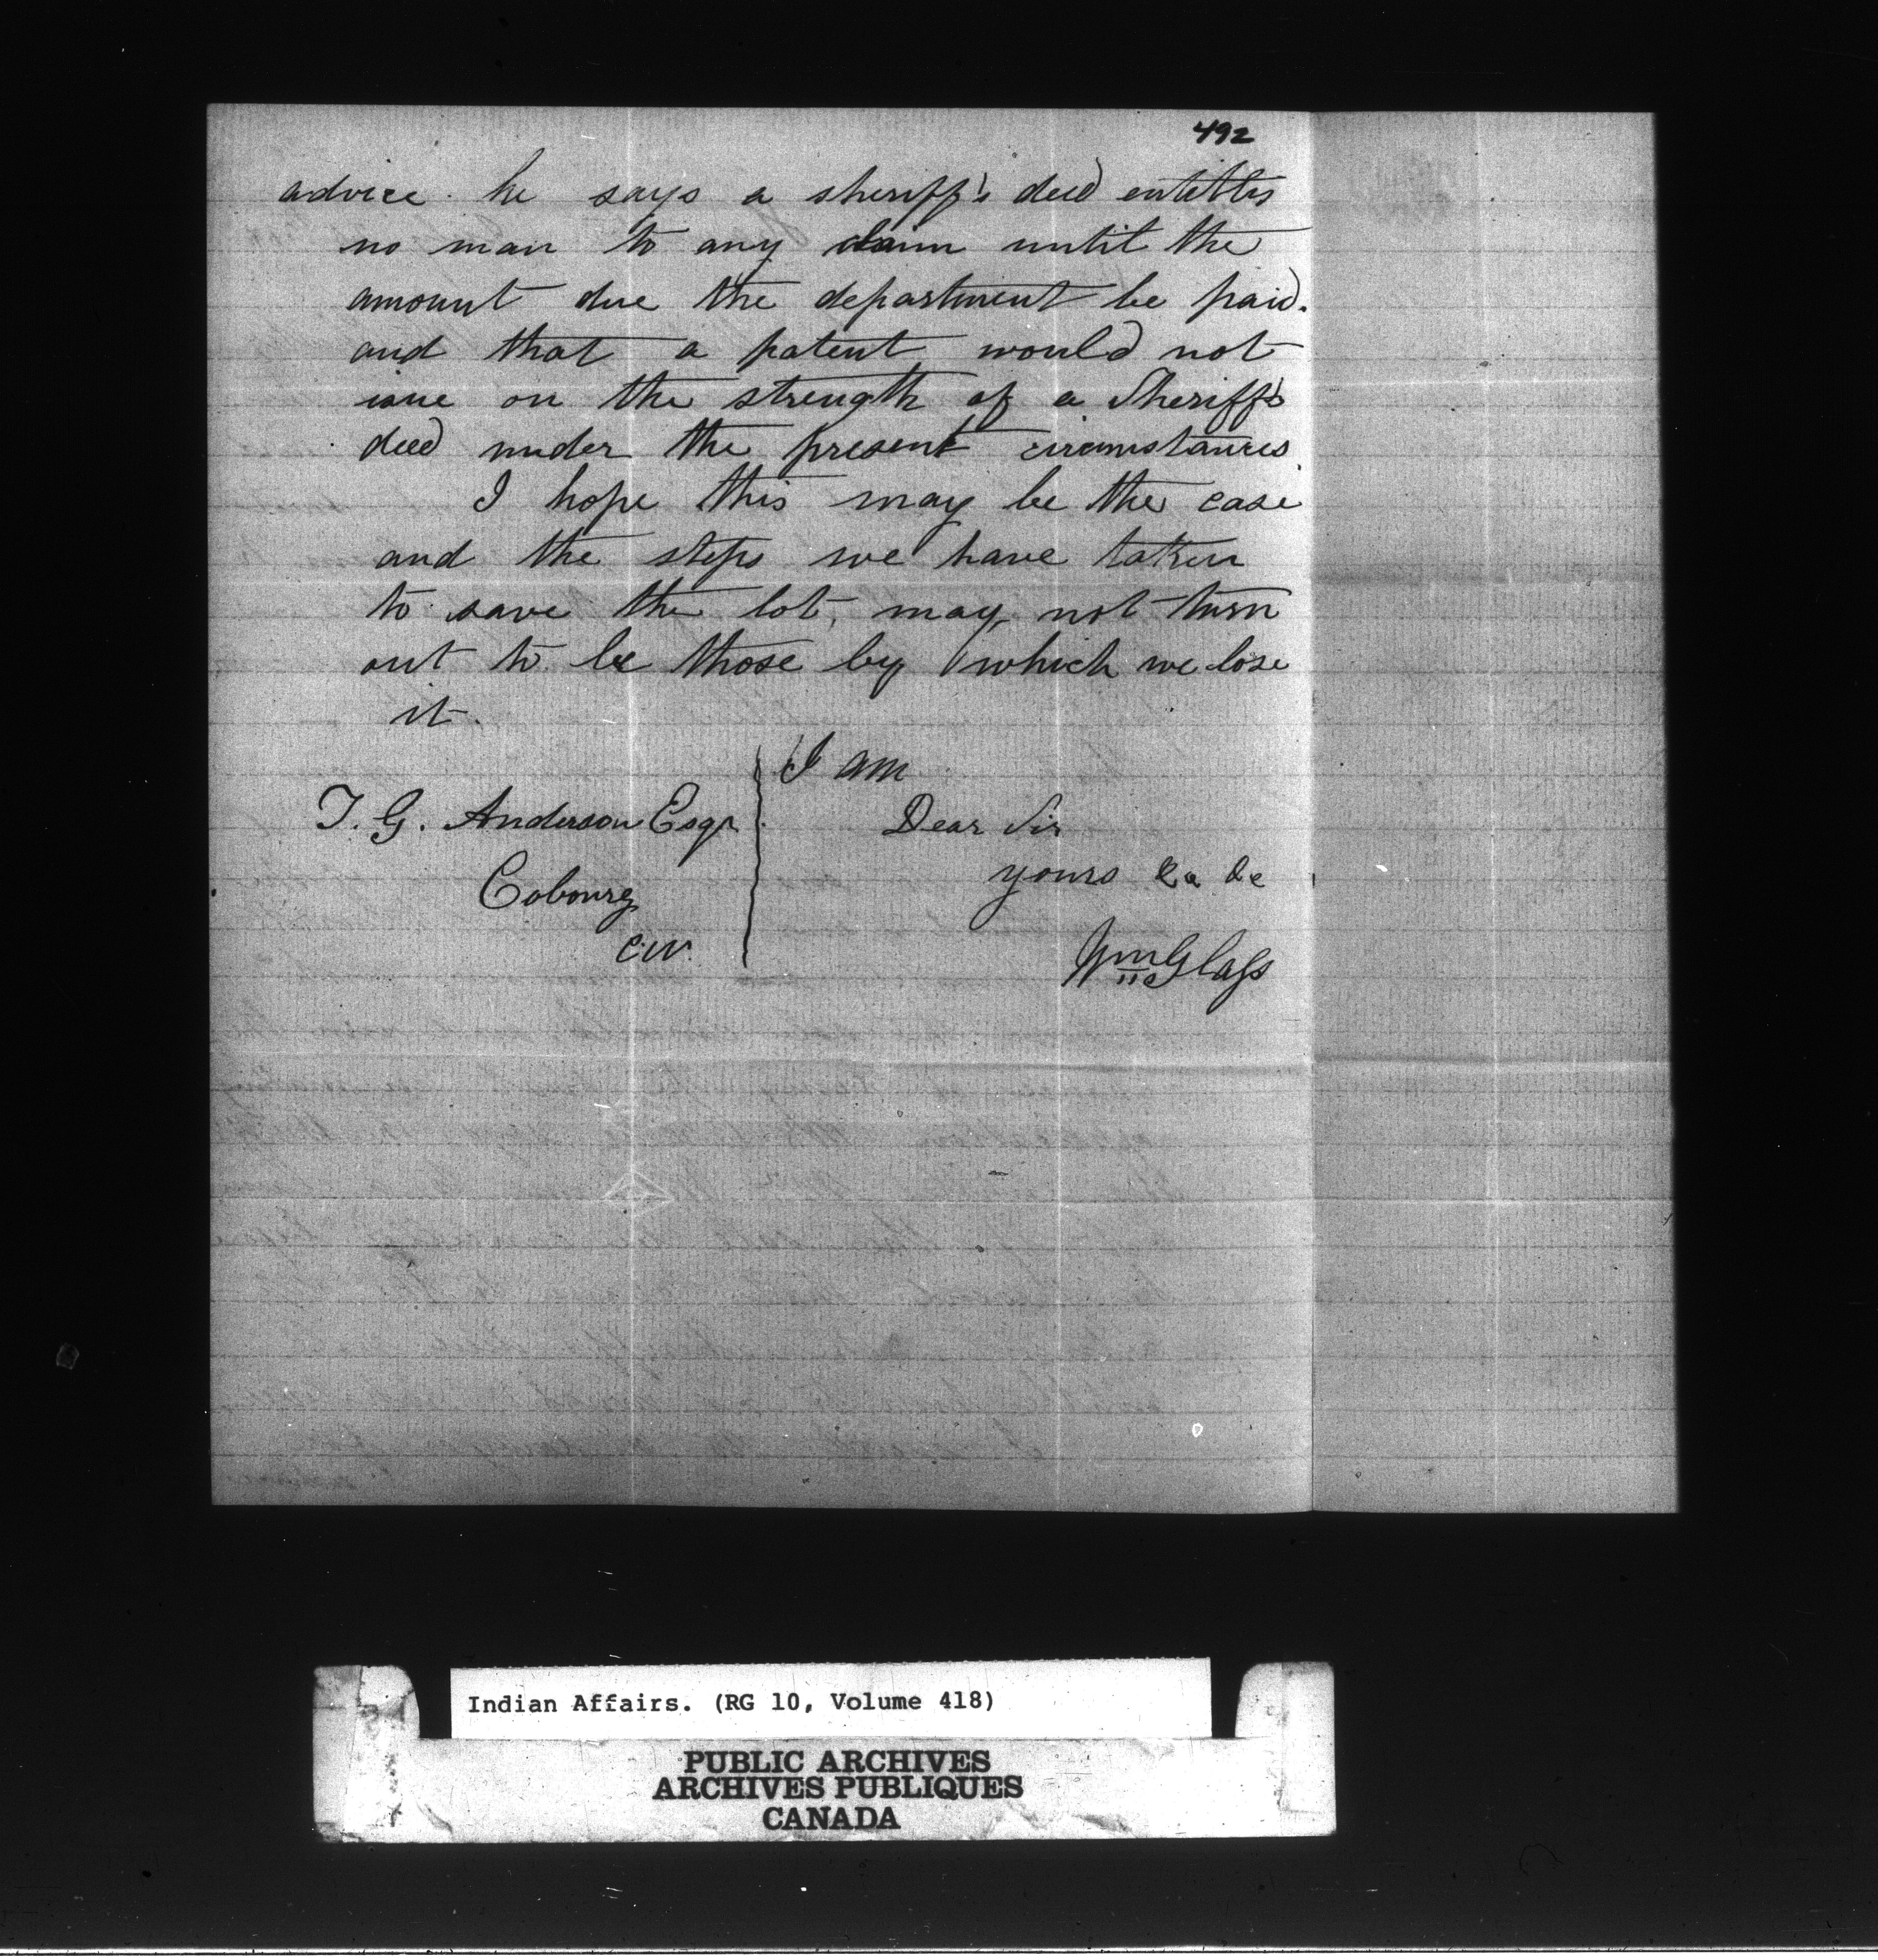 492
advice. he says a sheriff's deed entitles
no man to any claim until the
amount due the department be paid.
and that a patent would not
issue on the strength of a Sheriff's
deed under the present circumstances.
I hope this may be the case
and the steps we have taken
to save the lot, may not turn
out to be those by which we lose
it.
I am
Dear Sir
yours &c &c
Wm Glass
T. G. Anderson Esqr
Cobourg
C.W.
Indian Affairs. (RG 10, Volume 418)
PUBLIC ARCHIVES
ARCHIVES PUBLIQUES
CANADA